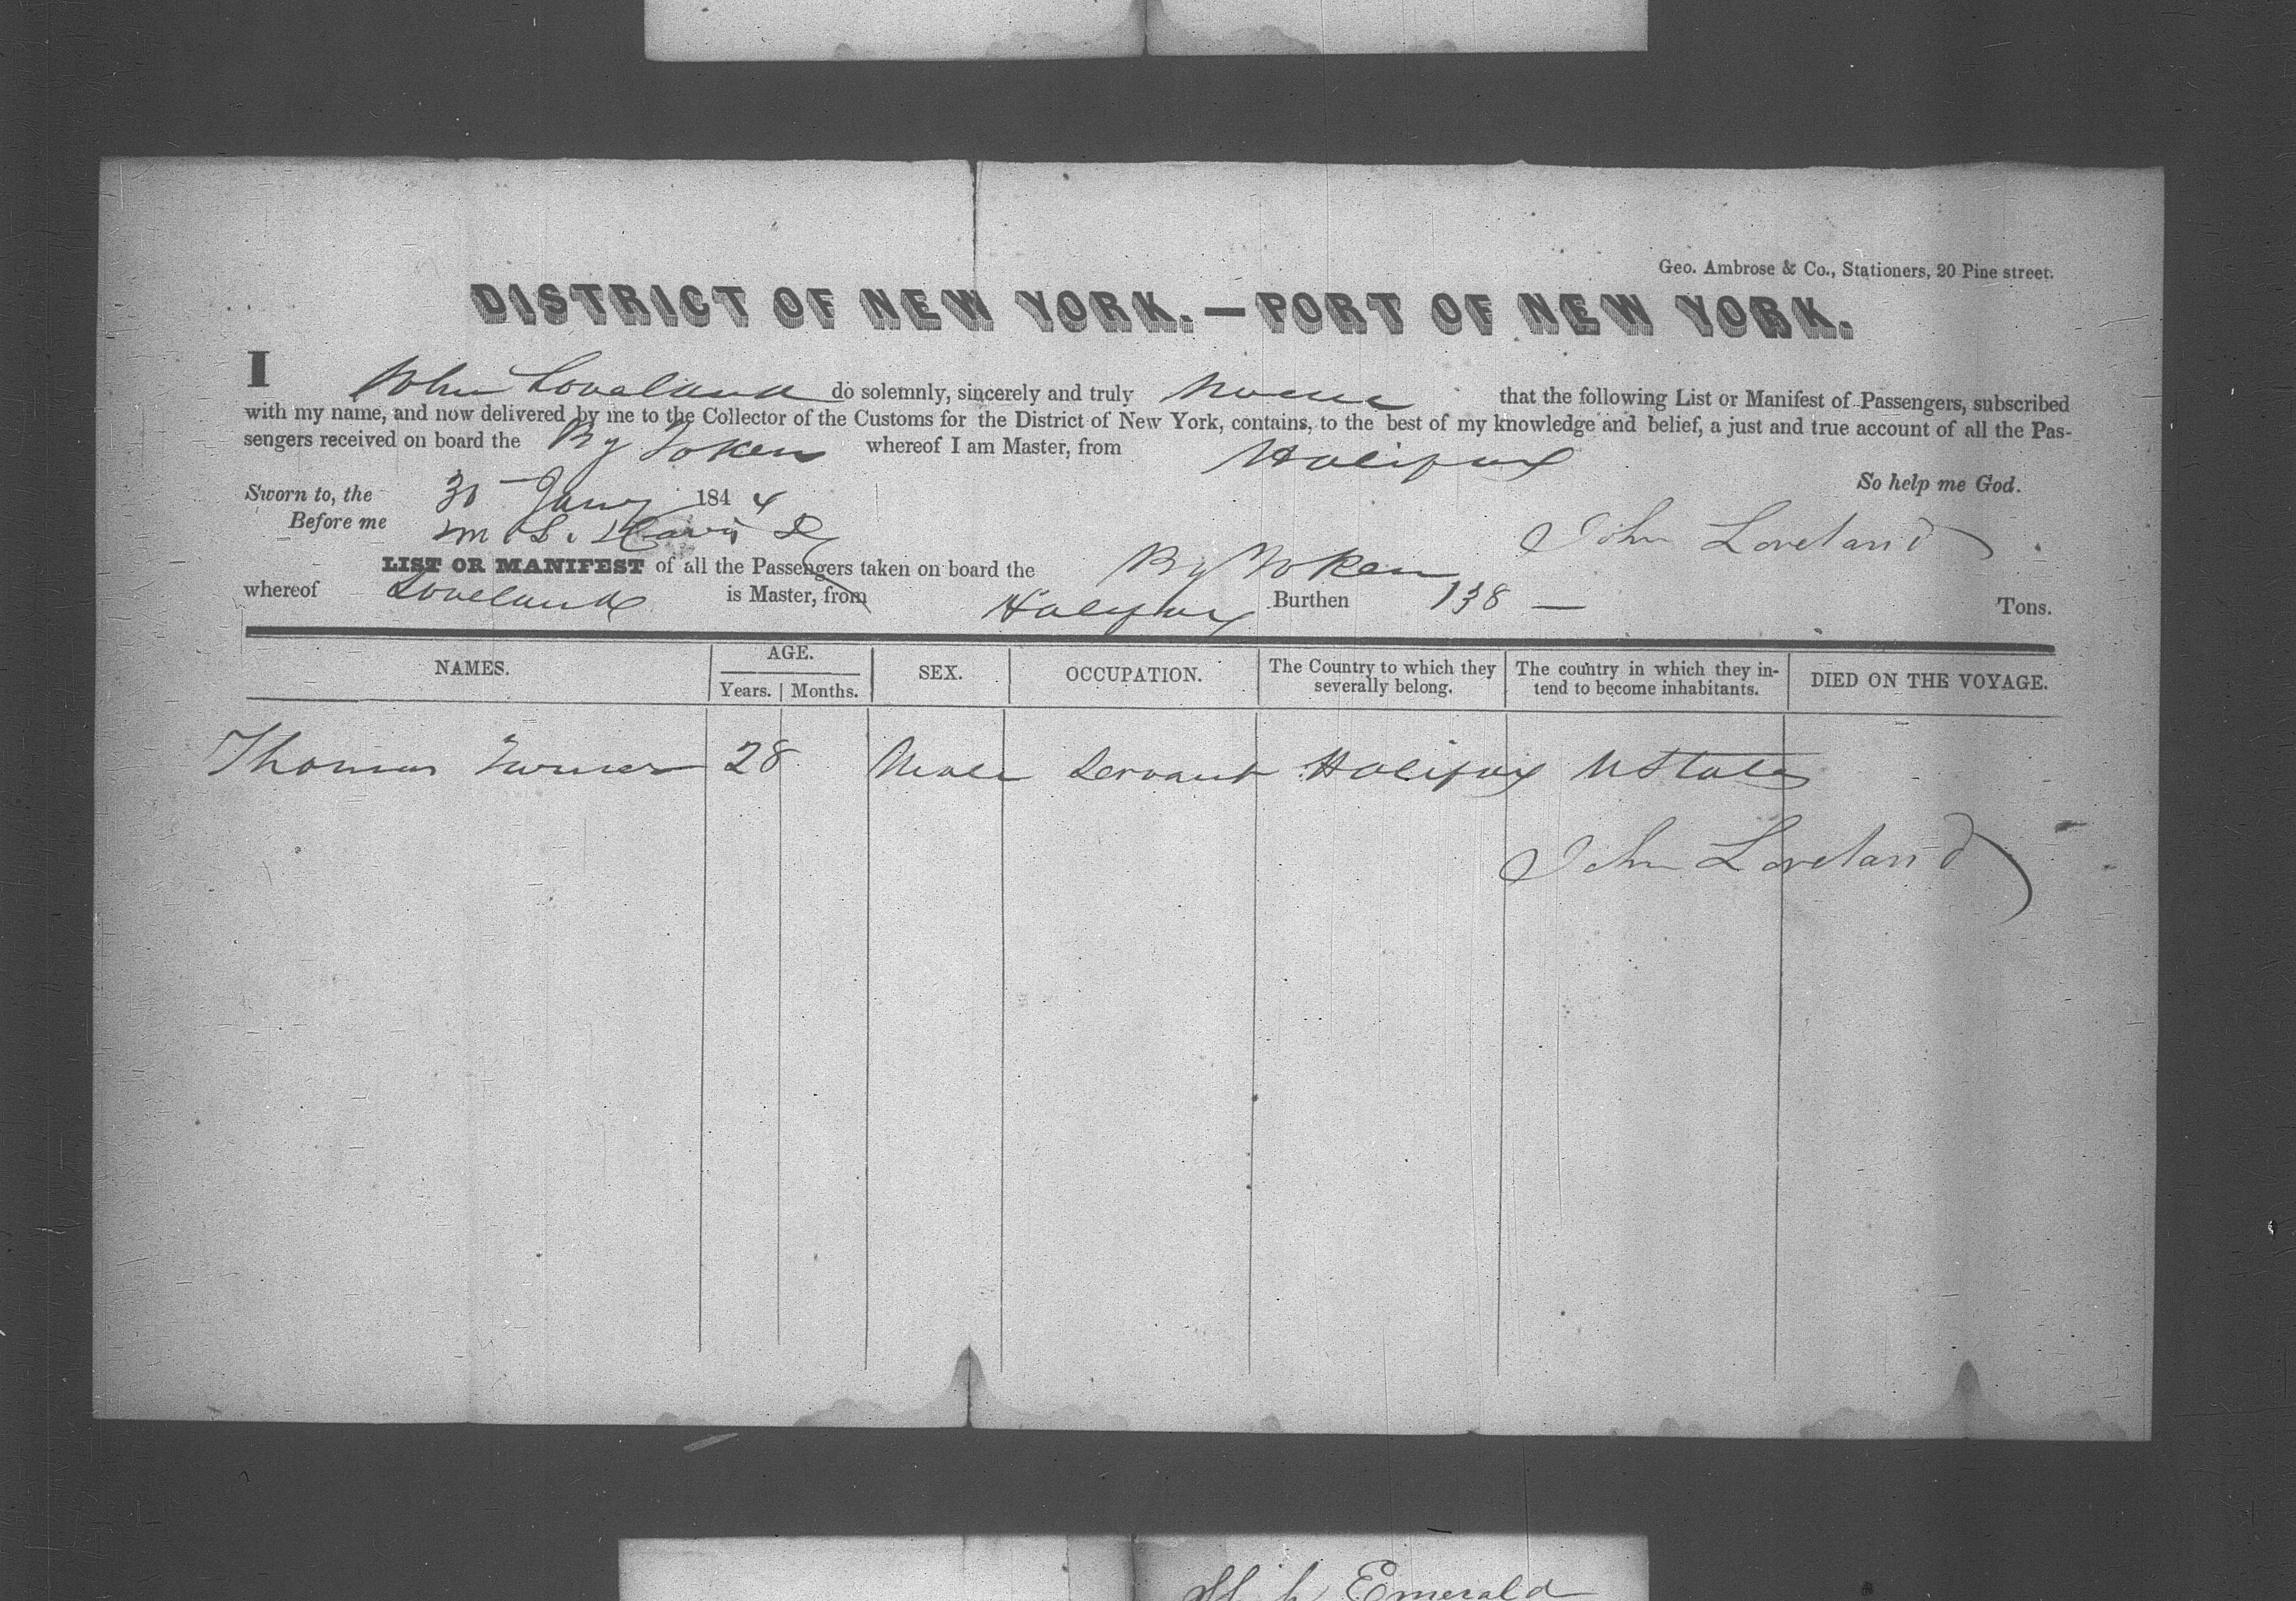 Geo. Ambrose & Co., Stationers, 20 Pine street.
DISTRICT OF NEW YORK.—PORT OF NEW YORK.
I John Loveland do solemnly, sincerely and truly that the following List or Manifest of Passengers, subscribed
with my name, and now delivered by me to the Collector of the Customs for the District of New York, contains, to the best of my knowledge and belief, a just and true account of all the Pas-
sengers received on board the By Token whereof I am Master, from Halifax
So help me God.
Sworn to, the 30 Jany 1844
Before me John Loveland
LIST OR MANIFEST of all the Passengers taken on board the By Token
whereof Loveland is Master, from Halifax Burthen 138 — Tons.
NAMES. AGE. SEX. OCCUPATION. The Country to which they severally belong. The country in which they in-tend to become inhabitants. DIED ON THE VOYAGE.
Years. Months.
Thomas Turner 28 Male Servant Halifax U States
John Loveland
Emerald